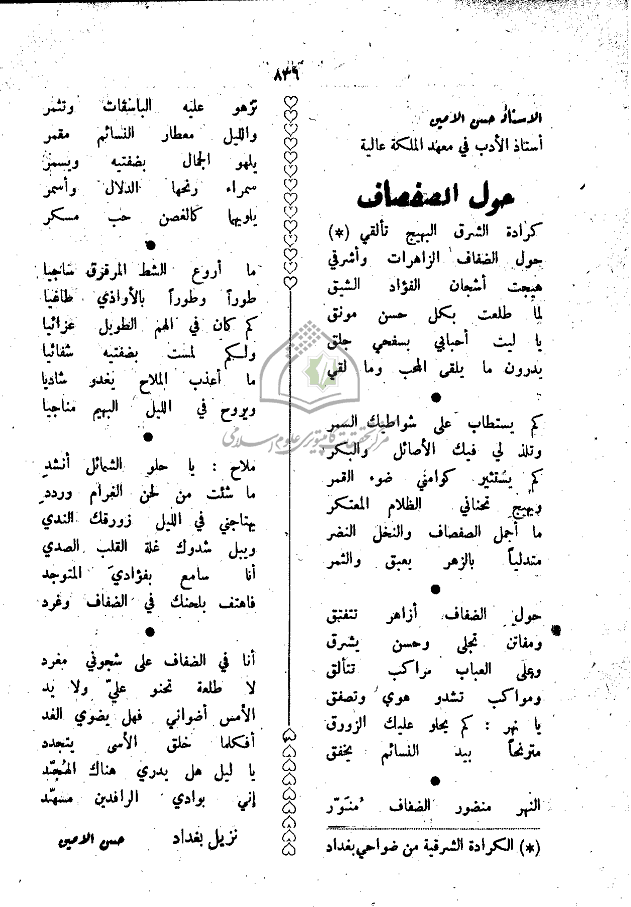 ٨٣٩
الاستاذ حسن الامين
أستاذ الأدب في معهد الملكة عالية
حول الصفصاف
كرادة الشرق البهيج تألقي (*)
حول الضفاف الزاهرات وأشرقي
هيجت أشجان الفؤاد الشيق
لما طلعت بكل حسن مونق
يا ليت أحبابي بسفحي جلق
يدرون ما يلقى المحب وما لقي
●
كم يستطاب على شواطيك السمر
وتلذ لي فيك الأصائل والبكر
كم يستثير كوامني ضوء القمر
ويهيج تحناني الظلام المعتكر
ما أجمل الصفصاف والنخل النضر
متدلياً بالزهر يعبق والثمر
●
حول الضفاف أزاهر تتفتق
ومفاتن تجلى وحسن يشرق
وعلى العباب مراكب تتألق
ومواكب تشدو هوي وتصفق
يا نهر : كم يحلو عليك الزورق
مترنحاً بيد النسائم يخفق
●
النهر منضور الضفاف منوّر
(*) الكرادة الشرقية من ضواحي بغداد
تزهو عليه الباسقات وتثمر
والليل معطار النسائم مقمر
يلهو الجمال بضفتيه ويسمر
سمراء رنحها الدلال وأسمر
ياويها كالغصن حب مسكر
●
ما أروع الشط المرقرق ساجيا
طوراً وطوراً بالأواذي طاغيا
كم كان في الهم الطويل عزائيا
ولكم لمست بضفتيه شفائيا
ما أعذب الملاح يغدو شاديا
ويروح في الليل البهيم مناجيا
●
ملاح : يا حلو الشمائل أنشد
ما شئت من لحن الغرام وردد
يهتاجني في الليل زورقك الندي
ويبل شدوك غلة القلب الصدي
أنا سامع بفؤادي المتوجد
فاهتف بلحنك في الضفاف وغرد
●
أنا في الضفاف على شجوني مفرد
لا طلعة تحنو عليّ ولا يد
الأمس أضواني فهل يضوي الغد
أفكلما خلق الأسى يتجدد
يا ليل هل يدري هناك الهجّد
إني بوادي الرافدين مسهّد
نزيل بغداد حسن الامين
مركز تحقيقات كامپيوتری علوم اسلامی